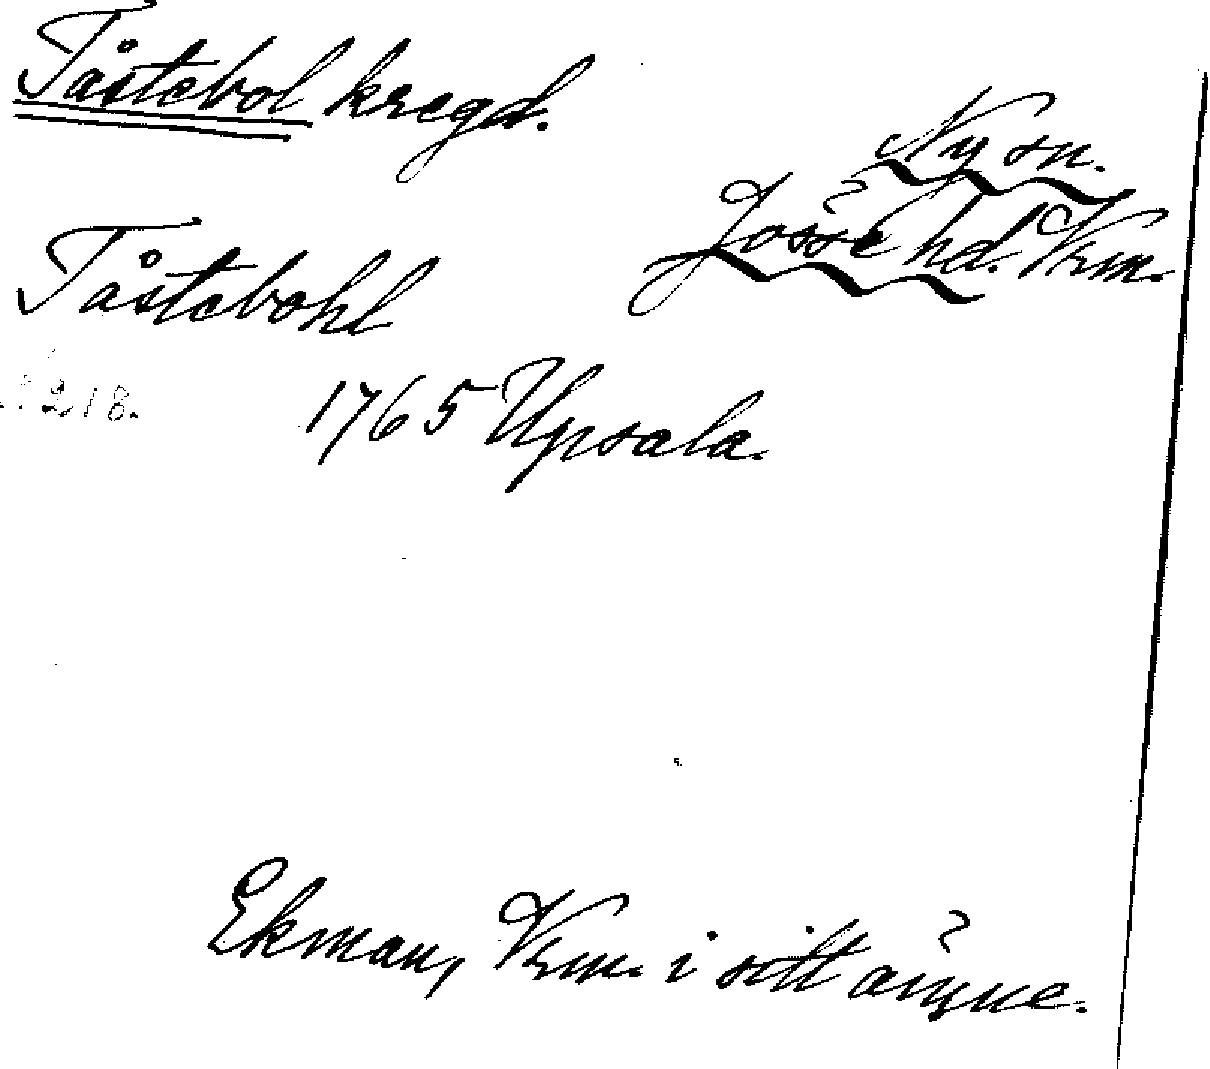 Tåstebol kregd.
Ny sn.
Jösse hd. Vrm.
Tåstebohl
1218.
1765 Upsala.
Ekman, Vrm. i sitt ämne.